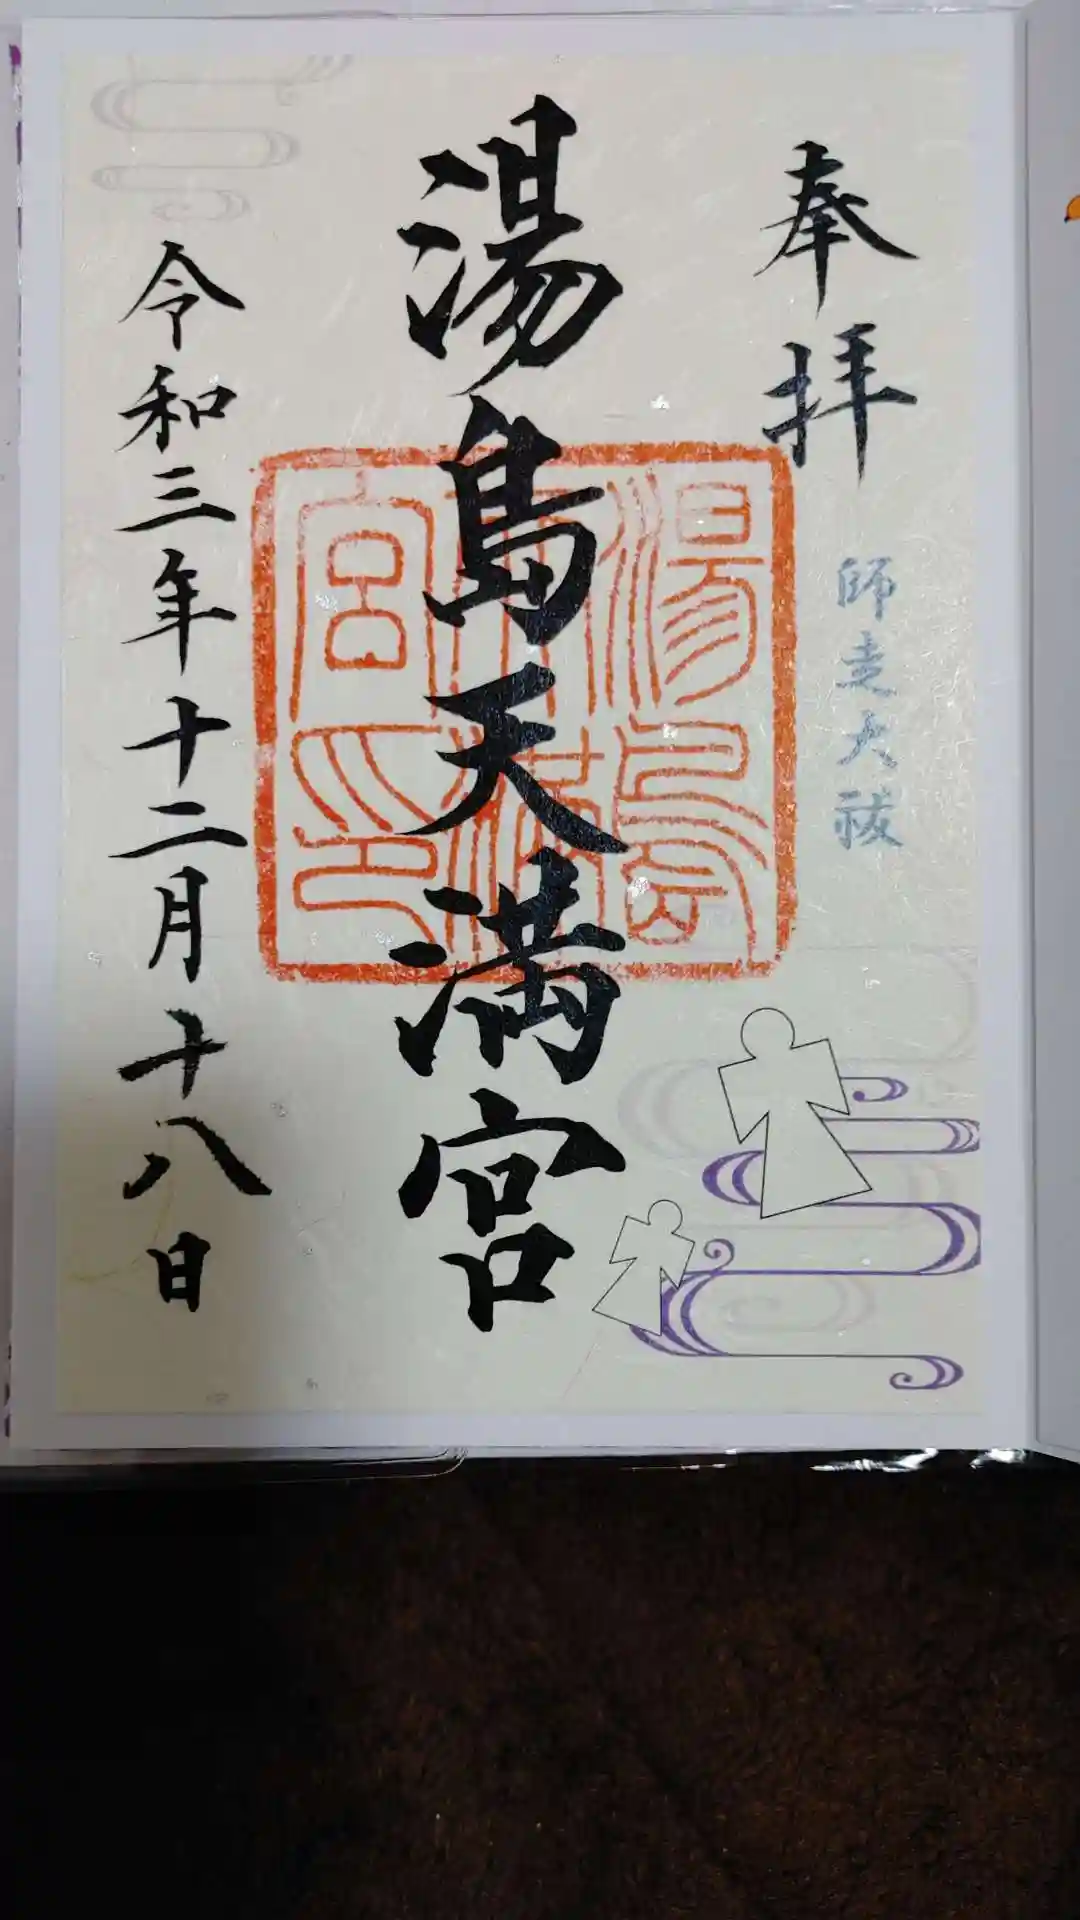 奉拝
師走大祓
湯島天満宮
湯島天満宮印
令和三年十二月十八日